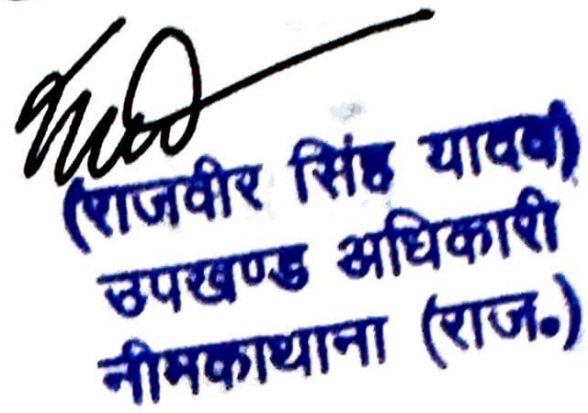 (राजवीर सिंह यादव)
उपखण्ड अधिकारी
नीमकाथाना (राज.)